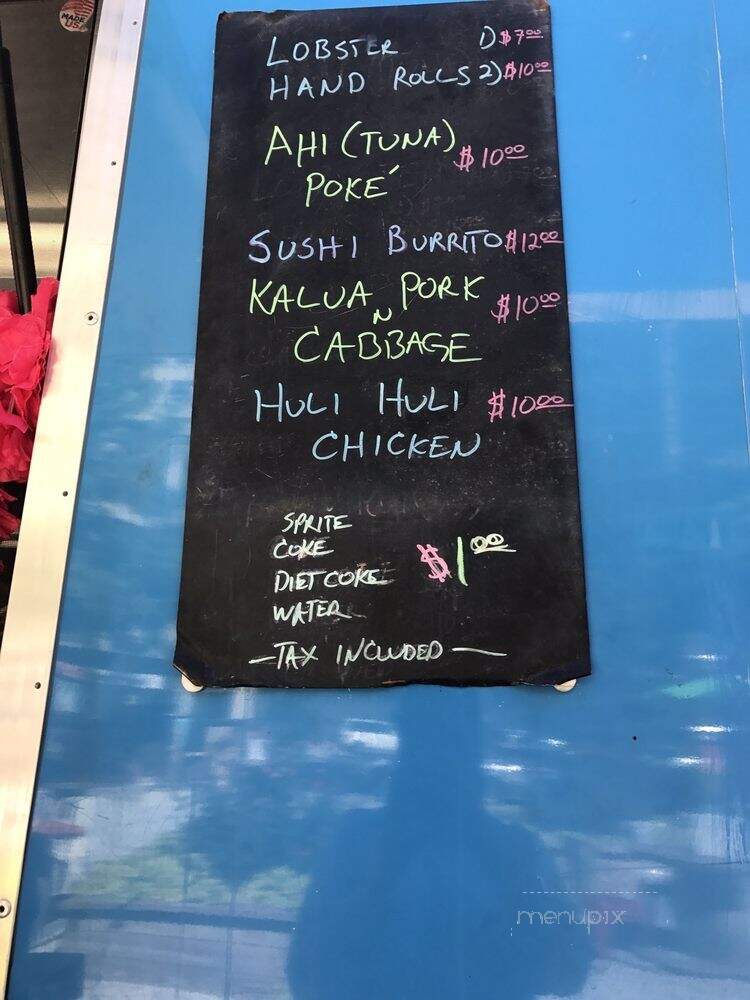 MADE
USA
LOBSTER 1) $7.00
HAND ROLLS 2) $10.00
AHI (TUNA) $10.00
POKÉ
SUSHI BURRITO $12.00
KALUA N PORK $10.00
CABBAGE
HULI HULI $10.00
CHICKEN
SPRITE
COKE $1.00
DIET COKE
WATER
—TAX INCLUDED—
menupix